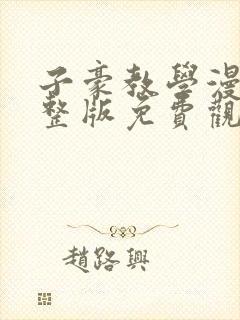 子豪教學漫
整版免費觀
趙路興